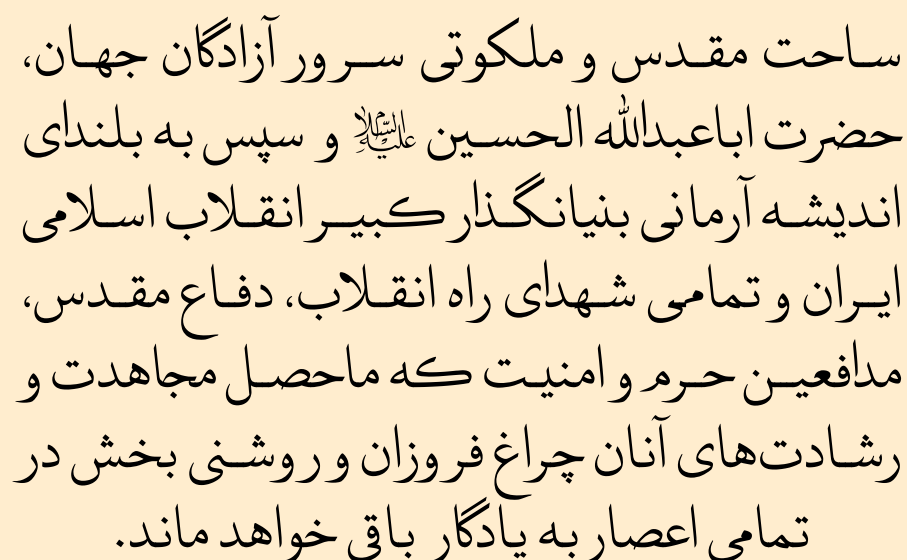 ساحت مقدس و ملکوتی سرور آزادگان جهان،
حضرت اباعبدالله الحسین علیه‌السلام و سپس به بلندای
اندیشه آرمانی بنیانگذار کبیر انقلاب اسلامی
ایران و تمامی شهدای راه انقلاب، دفاع مقدس،
مدافعین حرم و امنیت که ماحصل مجاهدت و
رشادت‌های آنان چراغ فروزان و روشنی بخش در
تمامی اعصار به یادگار باقی خواهد ماند.